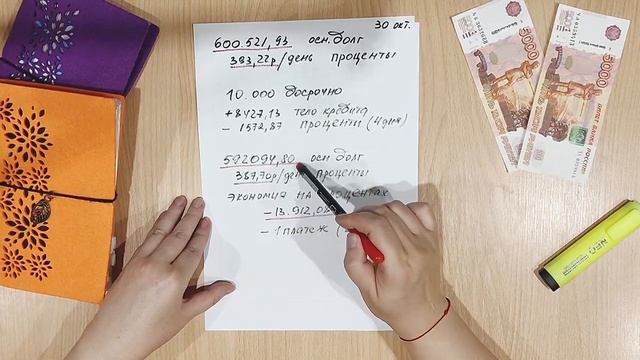 30 окт.
600.521,93 осн.долг
393,22р/день проценты
10.000 досрочно
+8427,13 тело кредита
- 1572,87 проценты (4 дня)
592094,80 осн долг
387,70р/день проценты
Экономия на процентах
-13.912,0
- 1 платеж (
5000
5000